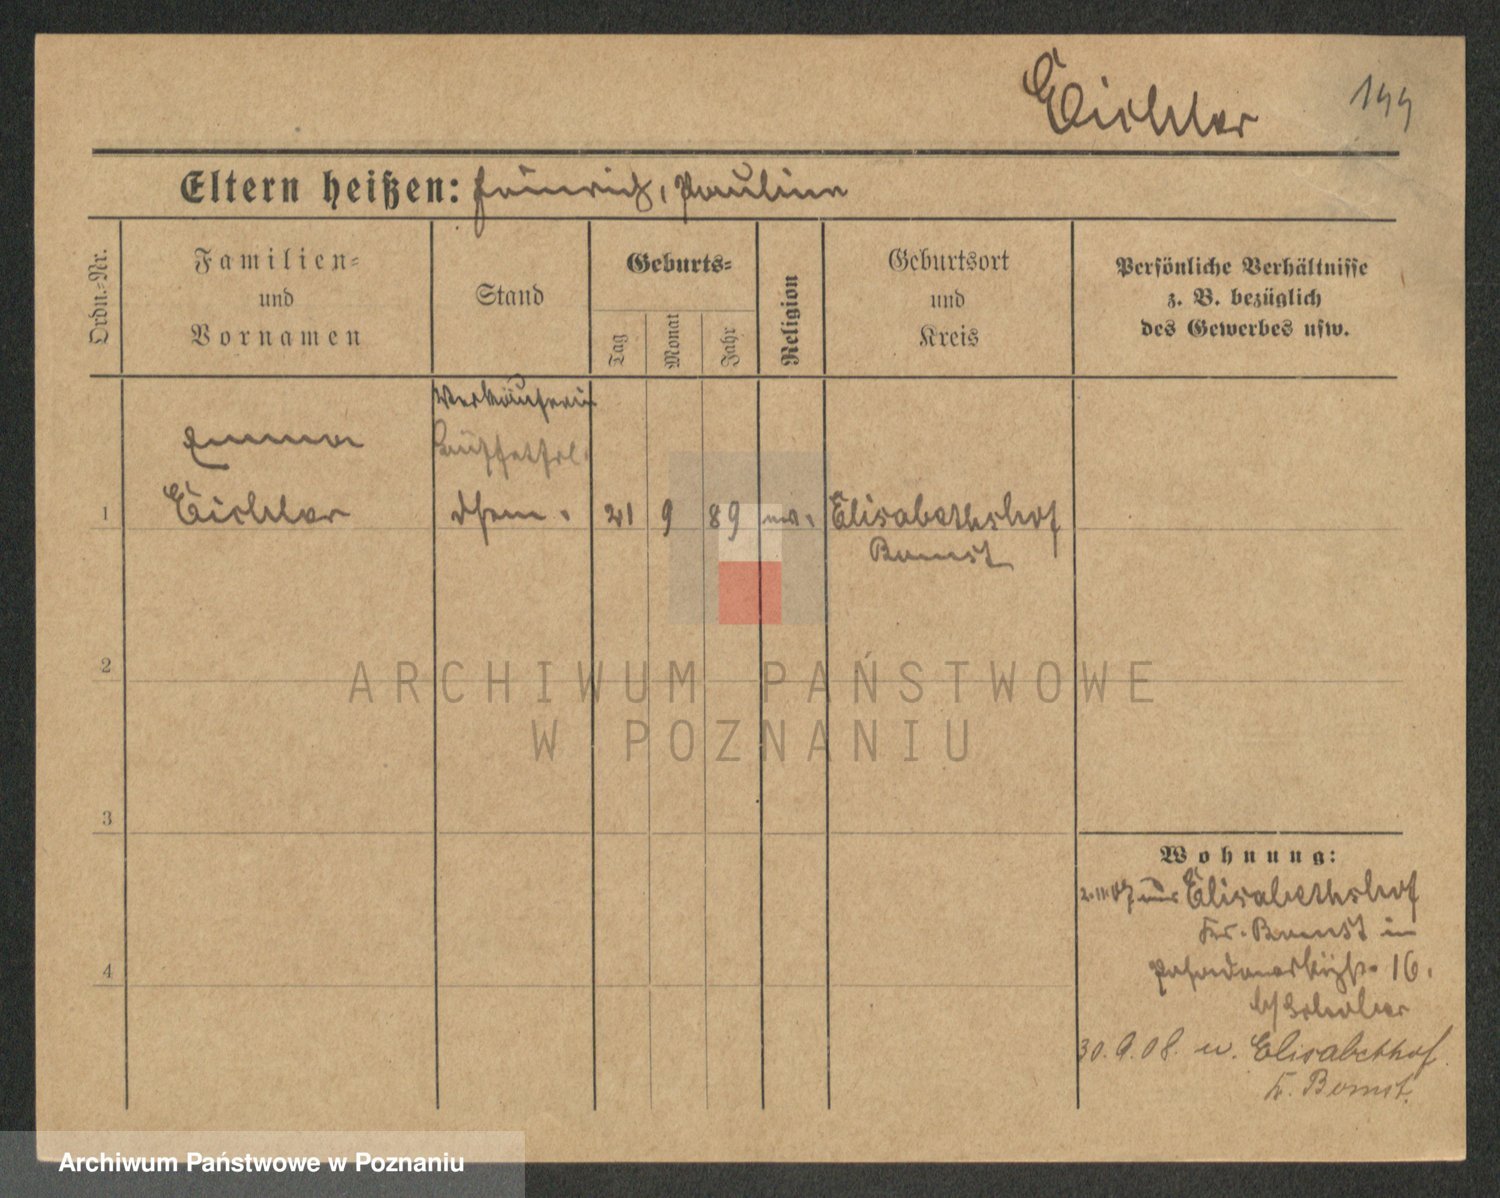 Eichler 144
Eltern heißen: Heinrich, Pauline
Ordn.-Nr.
Familien-
und
Vornamen
Stand
Geburts-
Tag
Monat
Jahr
Religion
Geburtsort
und
Kreis
Persönliche Verhältnisse
z. B. bezüglich
des Gewerbes usw.
Verkäuferin
Emma
Buffetfrl.
1 Eichler 21 9 89 ev. Elisabethshof
Bomst
2
3
4
ARCHIWUM PAŃSTWOWE
W POZNANIU
Wohnung:
aus Elisabethshof
Kr. Bomst in
16.
b/ Schober
30.9.08. n. Elisabethhof
Kr. Bomst.
Archiwum Państwowe w Poznaniu